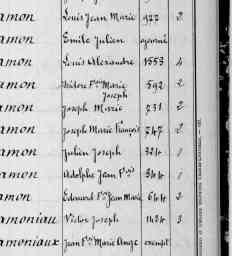 amon Louis Jean Marie 977 2
amon Emile Julien ajourné
amon Louis Alexandre 1553 4
amon Isidore Fois Marie Joseph 592 2
amon Joseph Marie 731 2
amon Joseph Marie François 747 2
amon Julien Joseph 324 1
amon Adolphe Jean Fois 344 1
amon Edouard Fois Jean Marie 644 2
amoniau Victor Joseph 1424 3
amoniaux Jean Fois Marie Ange exempt